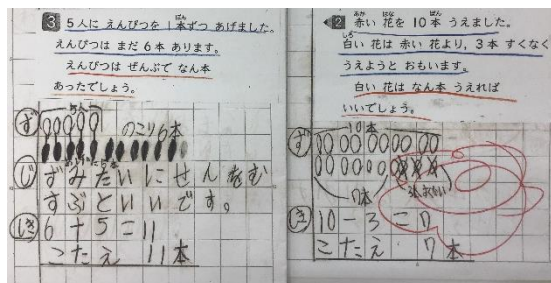 3 5人に えんぴつを 1本ずつ あげました。
えんぴつは まだ 6本 あります。
えんぴつは ぜんぶで なん本
あったでしょう。
5人
ず のこり6本
じ ずみたいにせんをむ
すぶといいです。
しき 6+5=11
こたえ 11本
2 赤い 花を 10本 うえました。
白い 花は 赤い 花より、3本 すくなく
うえようと おもいます。
白い 花は なん本 うえれば
いいでしょう。
10本
ず
7本
しき 10-3=7
こたえ 7本